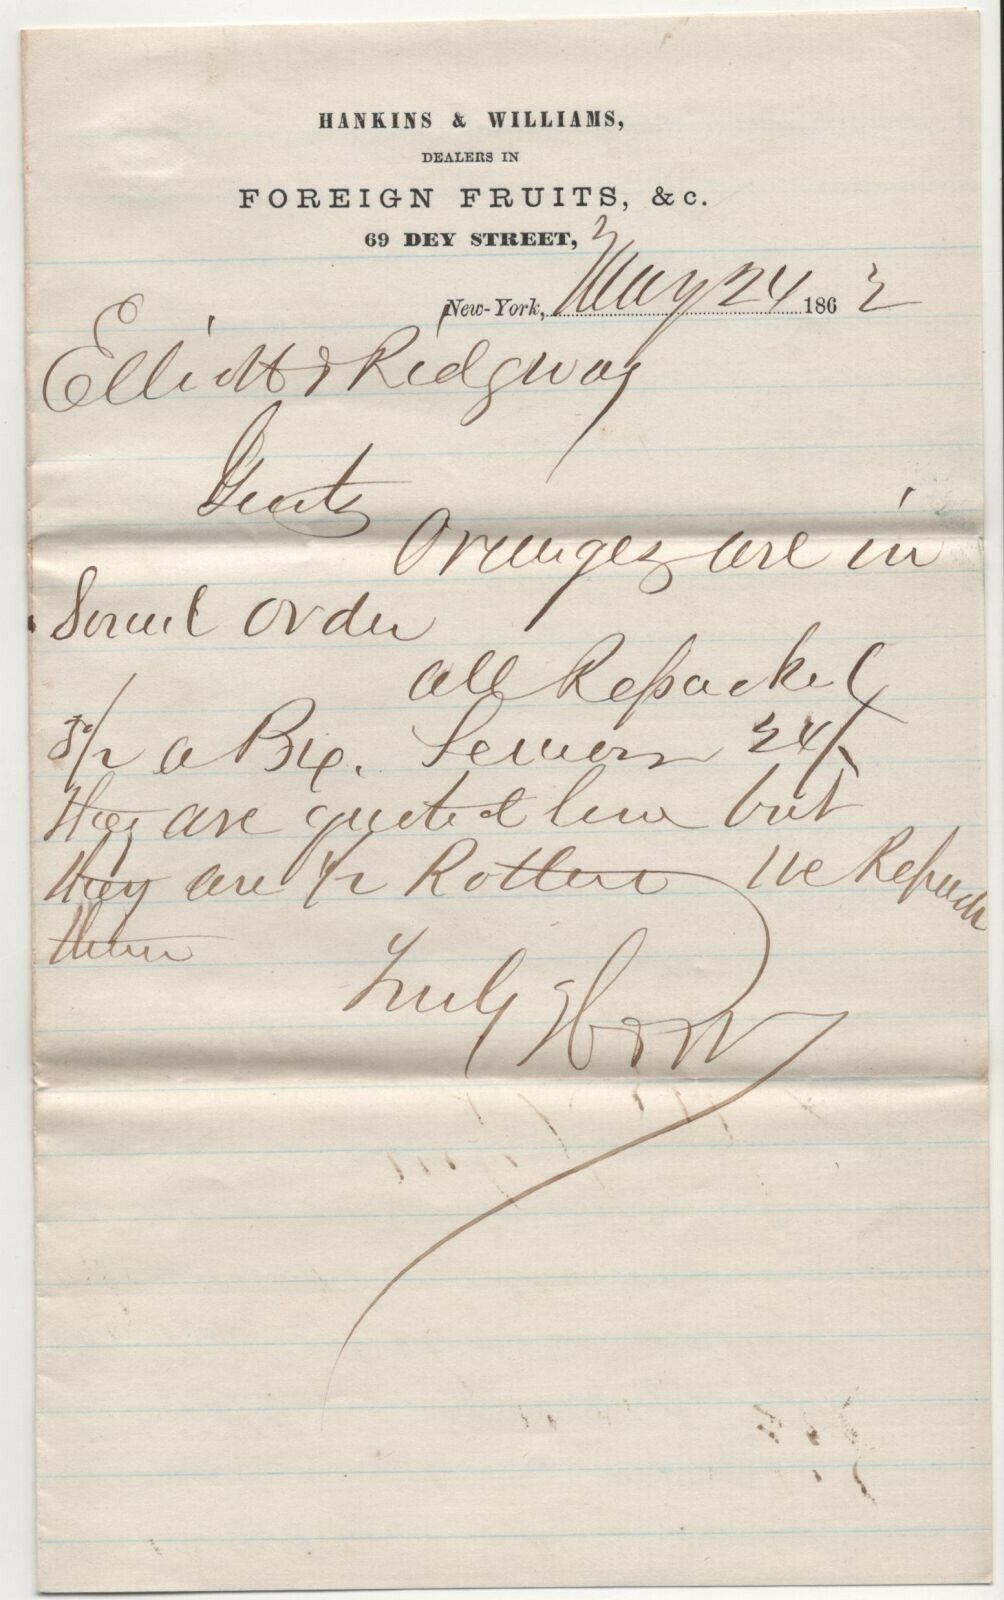 HANKINS & WILLIAMS,
DEALERS IN
FOREIGN FRUITS, &c.
69 DEY STREET,
New-York, May 24 1862
Elliott & Ridgway
Gents
Oranges are in
Sound order
all Repacked
a Bx. Lemons 24/
they are quoted low but
they are 1/2 Rotten We Repack
them
Truly H & W